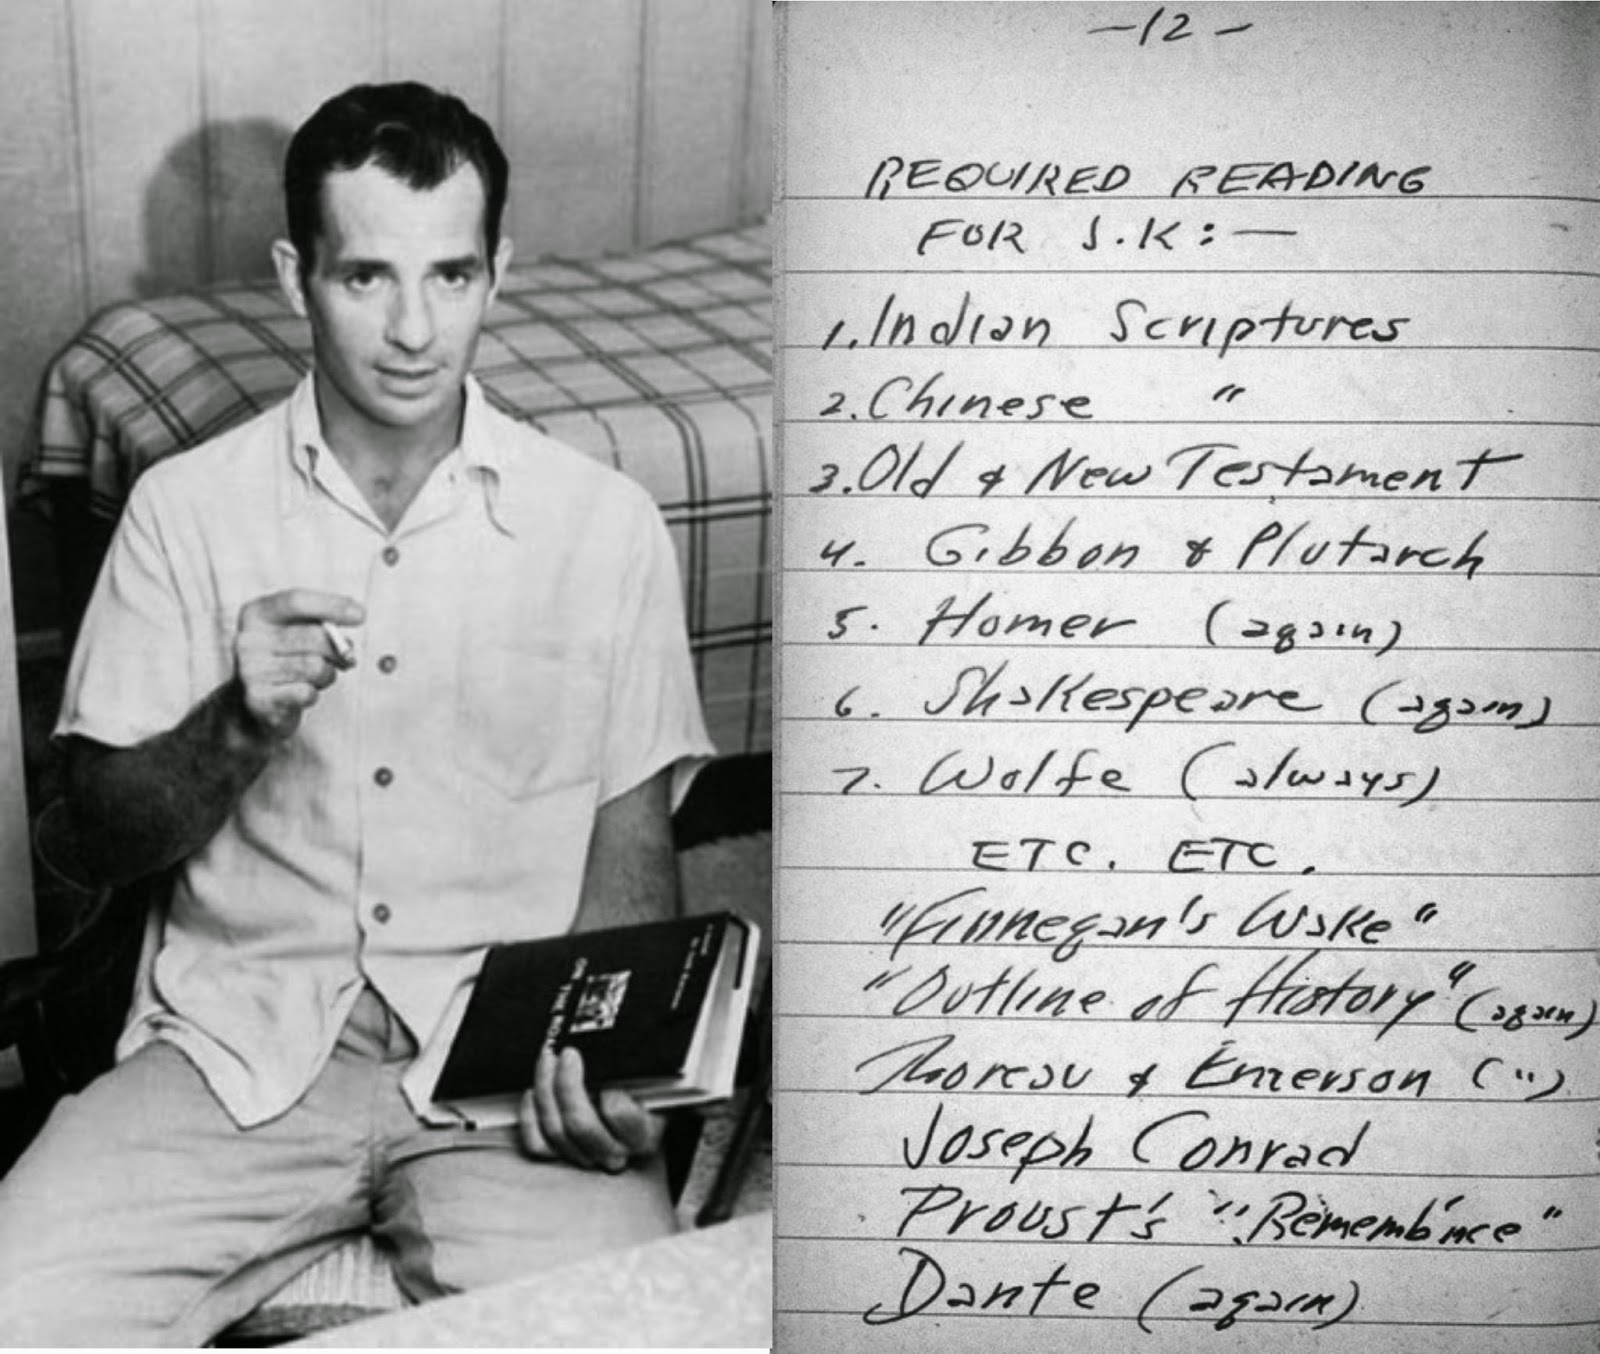 ON THE ROAD
-12-
REQUIRED READING
FOR J.K:—
1. Indian Scriptures
2. Chinese "
3. Old & New Testament
4. Gibbon & Plutarch
5. Homer (again)
6. Shakespeare (again)
7. Wolfe (always)
ETC. ETC.
"Finnegan's Wake"
"Outline of History" (again)
Thoreau & Emerson (")
Joseph Conrad
Proust's "Rememb'nce"
Dante (again)